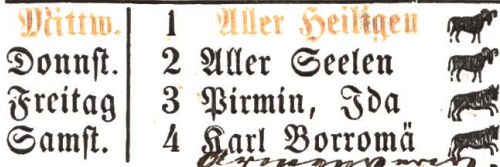 Mittw. 1 Aller Heiligen
Donnst. 2 Aller Seelen
Freitag 3 Pirmin, Ida
Samst. 4 Karl Borromä